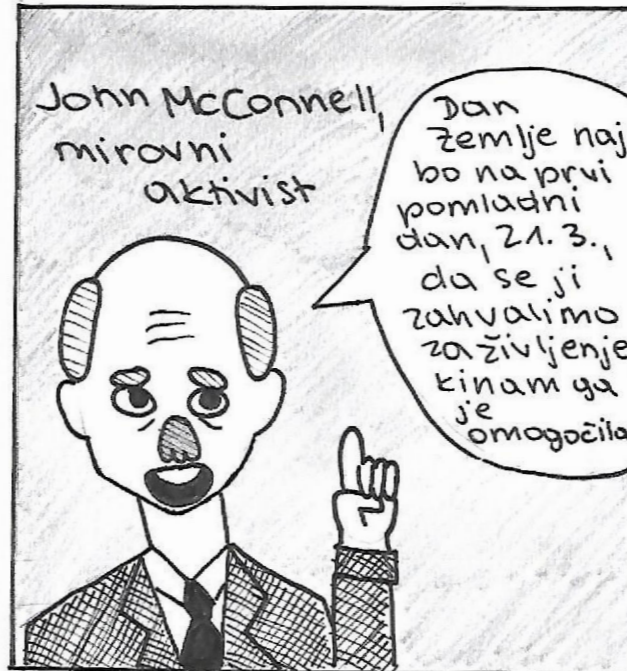 John McConnell,
mirovni
aktivist
Dan
Zemlje naj
bo na prvi
pomladni
dan, 21.3.,
da se ji
zahvalimo
za življenje
ki nam ga
je
omogočila